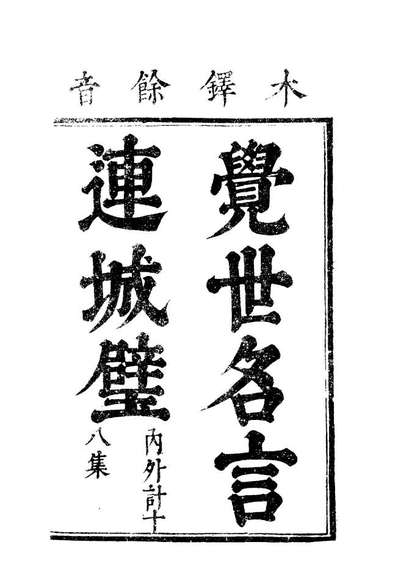 木鐸餘音
覺世名言
連城璧
內外計十
八集